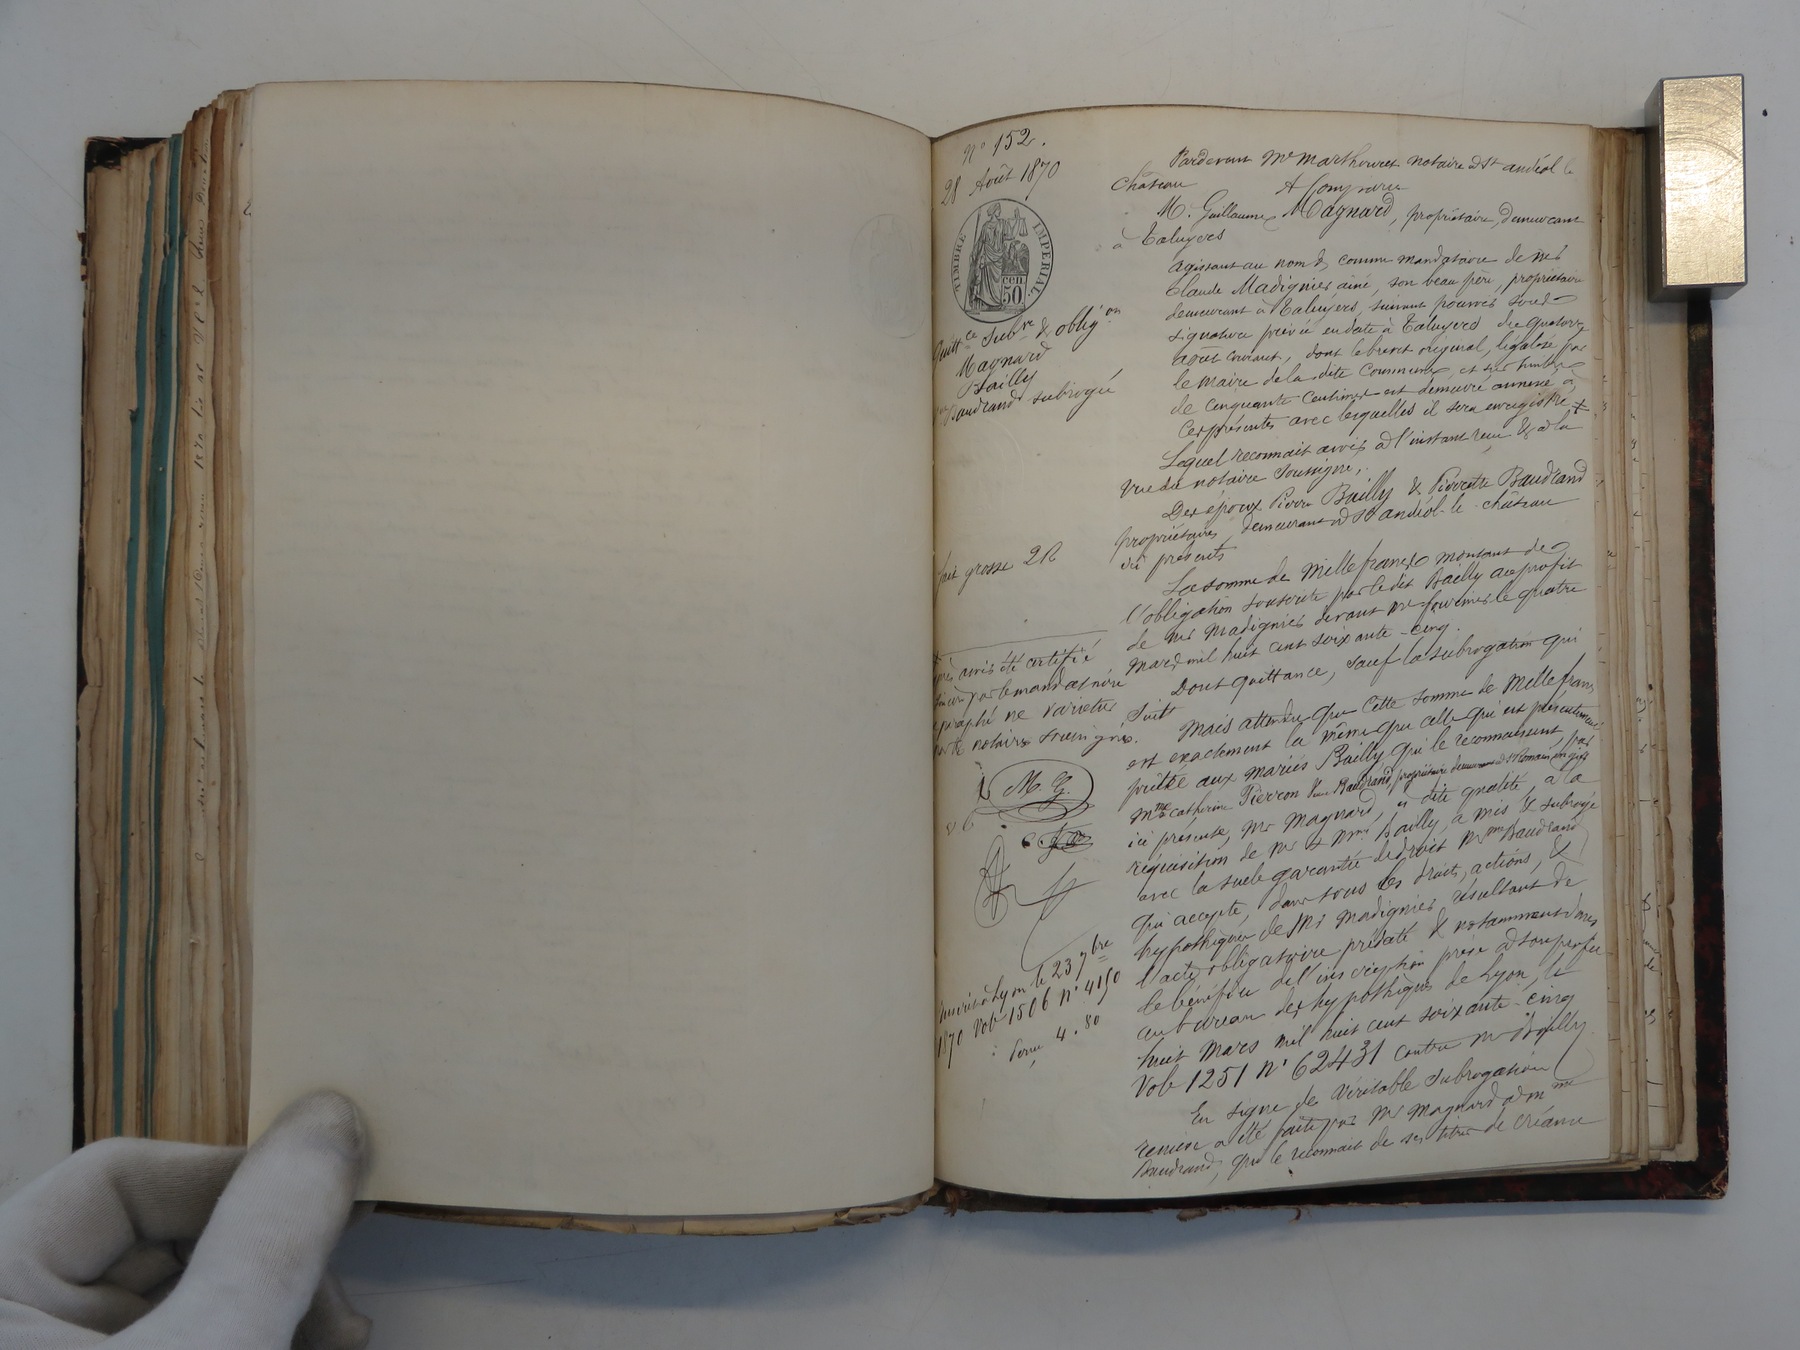 N° 152.
28 Août 1870
TIMBRE IMPERIAL
cen 50
Quittce Subre & obligon
Magnard
Bailly
Baudrand subrogé
fait grosse 2R
avoir été certifié
par le mandataire
paraphé ne varietur
notaire soussigné.
M. G.
Inscrit à Lyon le 23 7bre
1870 Vol 1506 n° 4150
4.80
Pardevant Me Marthouret notaire à St andéol le
Château
A Comparu
M. Guillaume Magnard, propriétaire, demeurant
à Taluyers
agissant au nom & comme mandataire de Mr
Claude Madignier ainé, son beau père, propriétaire
demeurant à Taluyers, suivant pouvoir sous
signature privée en date à Taluyers du quatorze
août courant, dont le brevet original, légalisé par
le maire de la dite Commune, et sur timbre
de cinquante Centimes est demeuré annexé à
ces présentes avec lesquelles il sera enregistré +
Lequel reconnait avoir à l'instant reçu & à la
vue du notaire soussigné,
Des époux Pierre Bailly & Pierrette Baudrand
propriétaires, demeurant à St andéol-le-château
ici présents
La somme de Mille francs montant de
l'obligation souscrite par le dit Bailly au profit
de Mr Madignier devant Me le quatre
Mars mil huit cent soixante-cinq.
Dont quittance, sauf la subrogation qui
suit
Mais attendu que cette somme de Mille francs
est exactement la même que celle qui est présentement
prêtée aux mariés Bailly, qui le reconnaissent, par
Mme Catherine Pierron Vve Baudrand, propriétaire demeurant à St Romain en gier
ici présente, Mr Magnard, en dite qualité, à la
réquisition de Mr & Mme Bailly, a mis & subrogé
avec la seule garantie de droit Mme Baudrand
qui accepte, dans tous les droits, actions, &
hypothèques de Mr Madignier résultant de
l'acte obligatoire prédaté & notamment dans
le bénéfice de l'inscription prise à son profit
au bureau des hypothèques de Lyon, le
huit Mars mil huit cent soixante-cinq
Vol 1251 n° 62431 contre Mr Bailly
En signe de véritable subrogation
remise a été faite par Mr Magnard à Mme
Baudrand, qui le reconnait de ses titres de créance